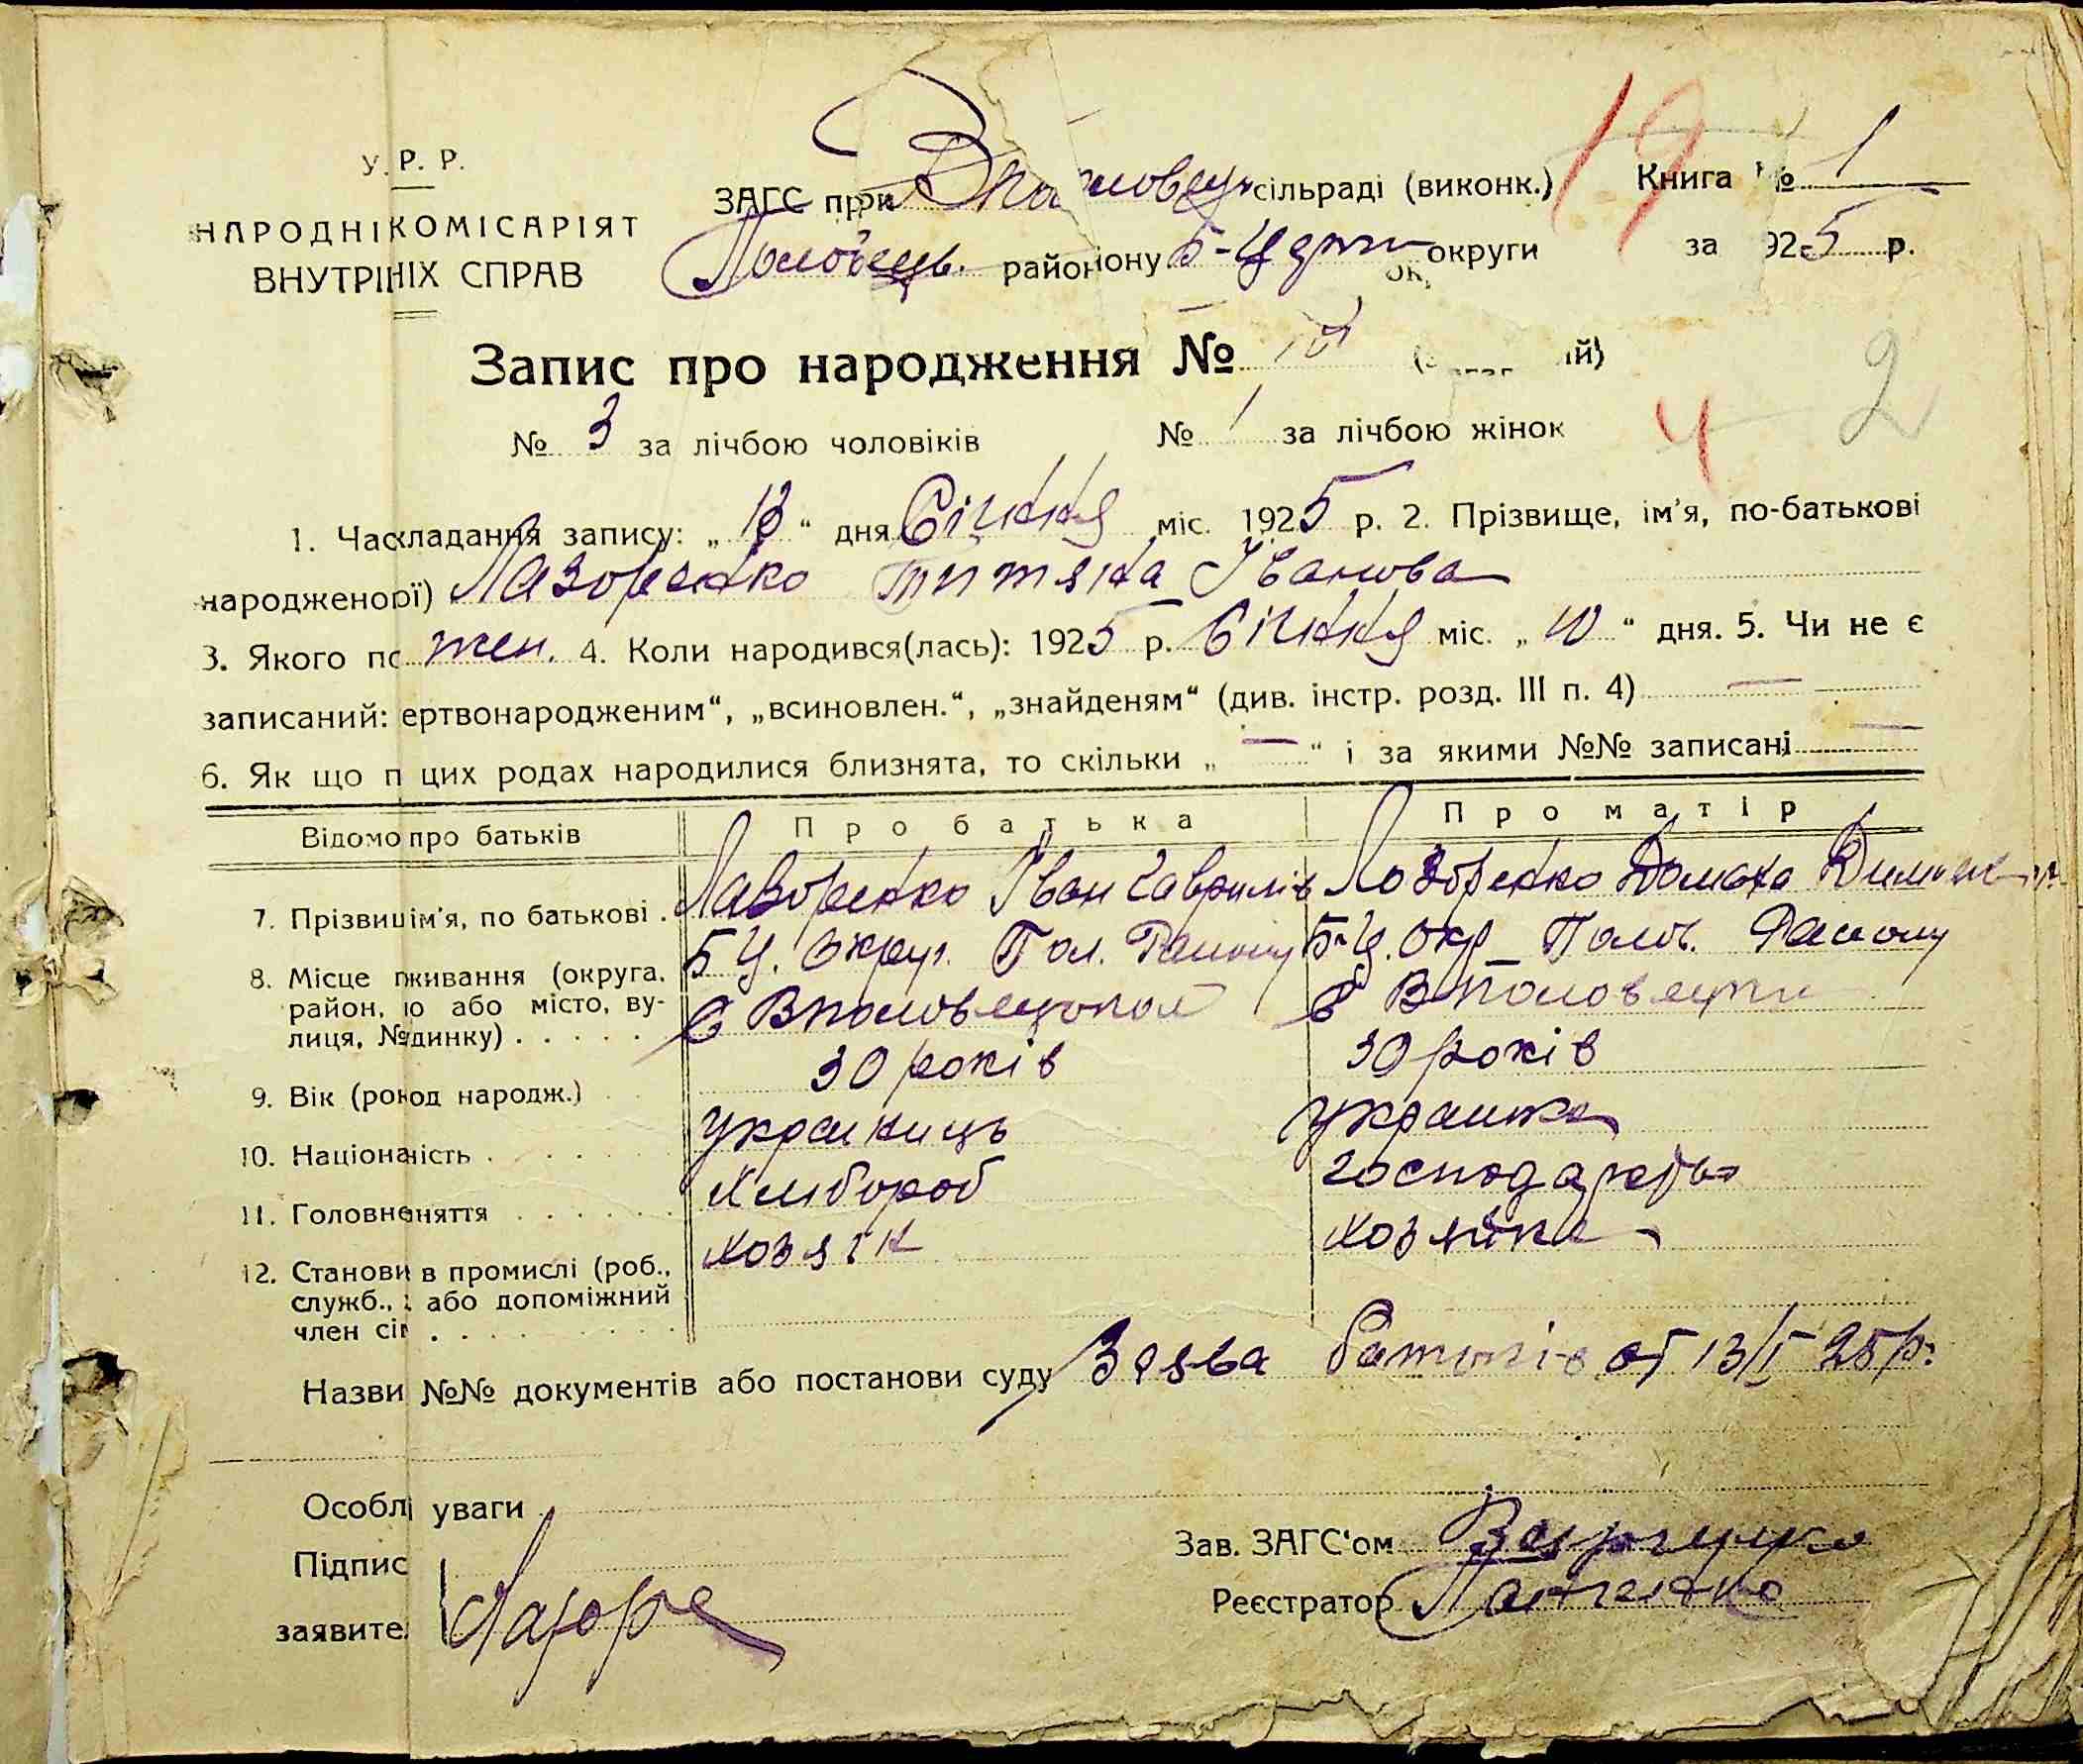 У. Р. Р.
НАРОДНІ КОМІСАРІЯТ
ВНУТРІНІХ СПРАВ
ЗАГС при сільраді (виконк.)
Половець. району Б-Церк округи
Книга № 1
за 1925 р.
19
Запис про народження №
№ 3 за лічбою чоловіків № 1 за лічбою жінок
4 2
1. Час кладання запису: „ 13 “ дня Січня міс. 1925 р. 2. Прізвище, ім’я, по-батькові
народженої) Лазоренко Титяна Іванова
3. Якого по жен. 4. Коли народився(лась): 1925 р. Січня міс. „ 10 “ дня. 5. Чи не є
записаний: ертвонародженим“, „всиновлен.“, „знайденям“ (див. інстр. розд. III п. 4) —
6. Як що п цих родах народилися близнята, то скільки „ — “ і за якими №№ записані —
Відомо про батьків Про батька Про матір
7. Прізвиш ім’я, по батькові . Лазоренко Іван Гаврилів Лозоренко Домаха
8. Місце живання (округа, Б Ц. Округ. Пол. Району Б-Ц. Окр Полов. Району
район, ю або місто, ву- с В Половецькой с В Половецьки
лиця, № динку) . . . . .
9. Вік (рок од народж.) 30 років 30 років
10. Націона ність . . . . . українець украинка
11. Головне няття . . . . . Хлибороб господарство
12. Станови в промислі (роб., хозяїн хозяйка
служб., або допоміжний
член сім . . . . . . . .
Назви №№ документів або постанови суду Заява батьків от 13/I 25 р.
Особлі уваги
Підпис
заявите. Лазоре
Зав. ЗАГС‘ом
Реєстратор Панченко